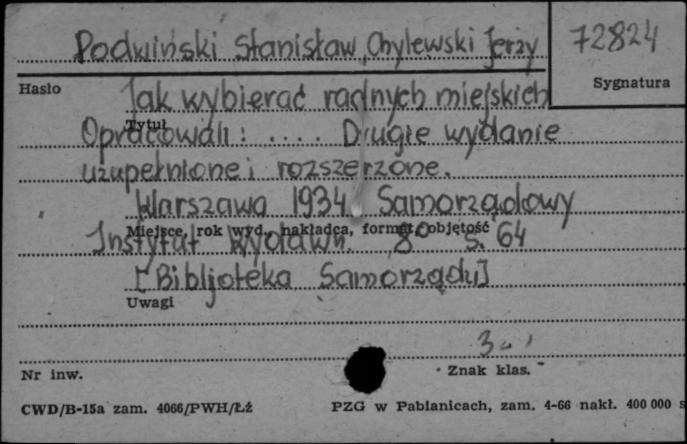 Podwiński Stanisław, Chylewski Jerzy
72824
Hasło
Sygnatura
Jak wybierać radnych miejskich
Tytuł
Opracowali: .... Drugie wydanie
uzupełnione i rozszerzone.
Warszawa 1934 Samorządowy
Miejsce, rok wyd., nakładca, format, objętość
Instytut Wydawn. 8° s. 64
[Bibljoteka Samorządu]
Uwagi
Nr inw.
Znak klas.
CWD/B-15a zam. 4066/PWH/Łź
PZG w Pabianicach, zam. 4-66 nakł. 400 000 s